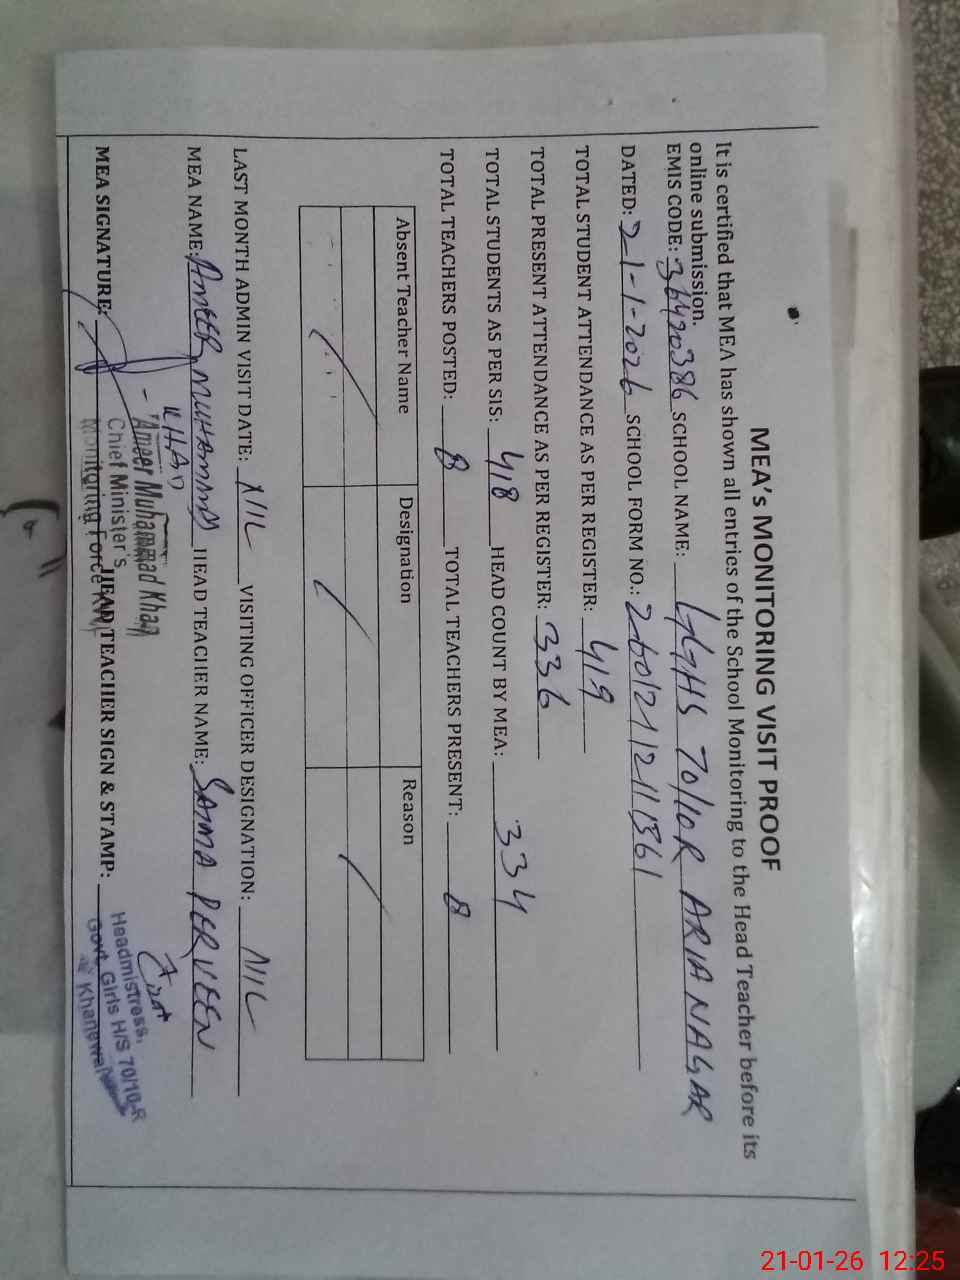 MEA's MONITORING VISIT PROOF
It is certified that MEA has shown all entries of the School Monitoring to the Head Teacher before its
online submission.
EMIS CODE: 36420386 SCHOOL NAME: GGHS 70/10R ARIA NAGAR
DATED: 21-1-2026 SCHOOL FORM NO.:
TOTAL STUDENT ATTENDANCE AS PER REGISTER: 419
TOTAL PRESENT ATTENDANCE AS PER REGISTER: 336
TOTAL STUDENTS AS PER SIS: 418 HEAD COUNT BY MEA: 334
TOTAL TEACHERS POSTED: 8 TOTAL TEACHERS PRESENT: 8
Absent Teacher Name Designation Reason
LAST MONTH ADMIN VISIT DATE: NIL VISITING OFFICER DESIGNATION: NIL
MEA NAME: AMEER MUHAMMAD KHAN HEAD TEACHER NAME: SAIMA PERVEEN
MEA SIGNATURE: HEAD TEACHER SIGN & STAMP:
Ameer Muhammad Khan
Chief Minister's
Monitoring Force
Headmistress,
Govt. Girls H/S 70/10-R
Khanewal
21-01-26 12:25